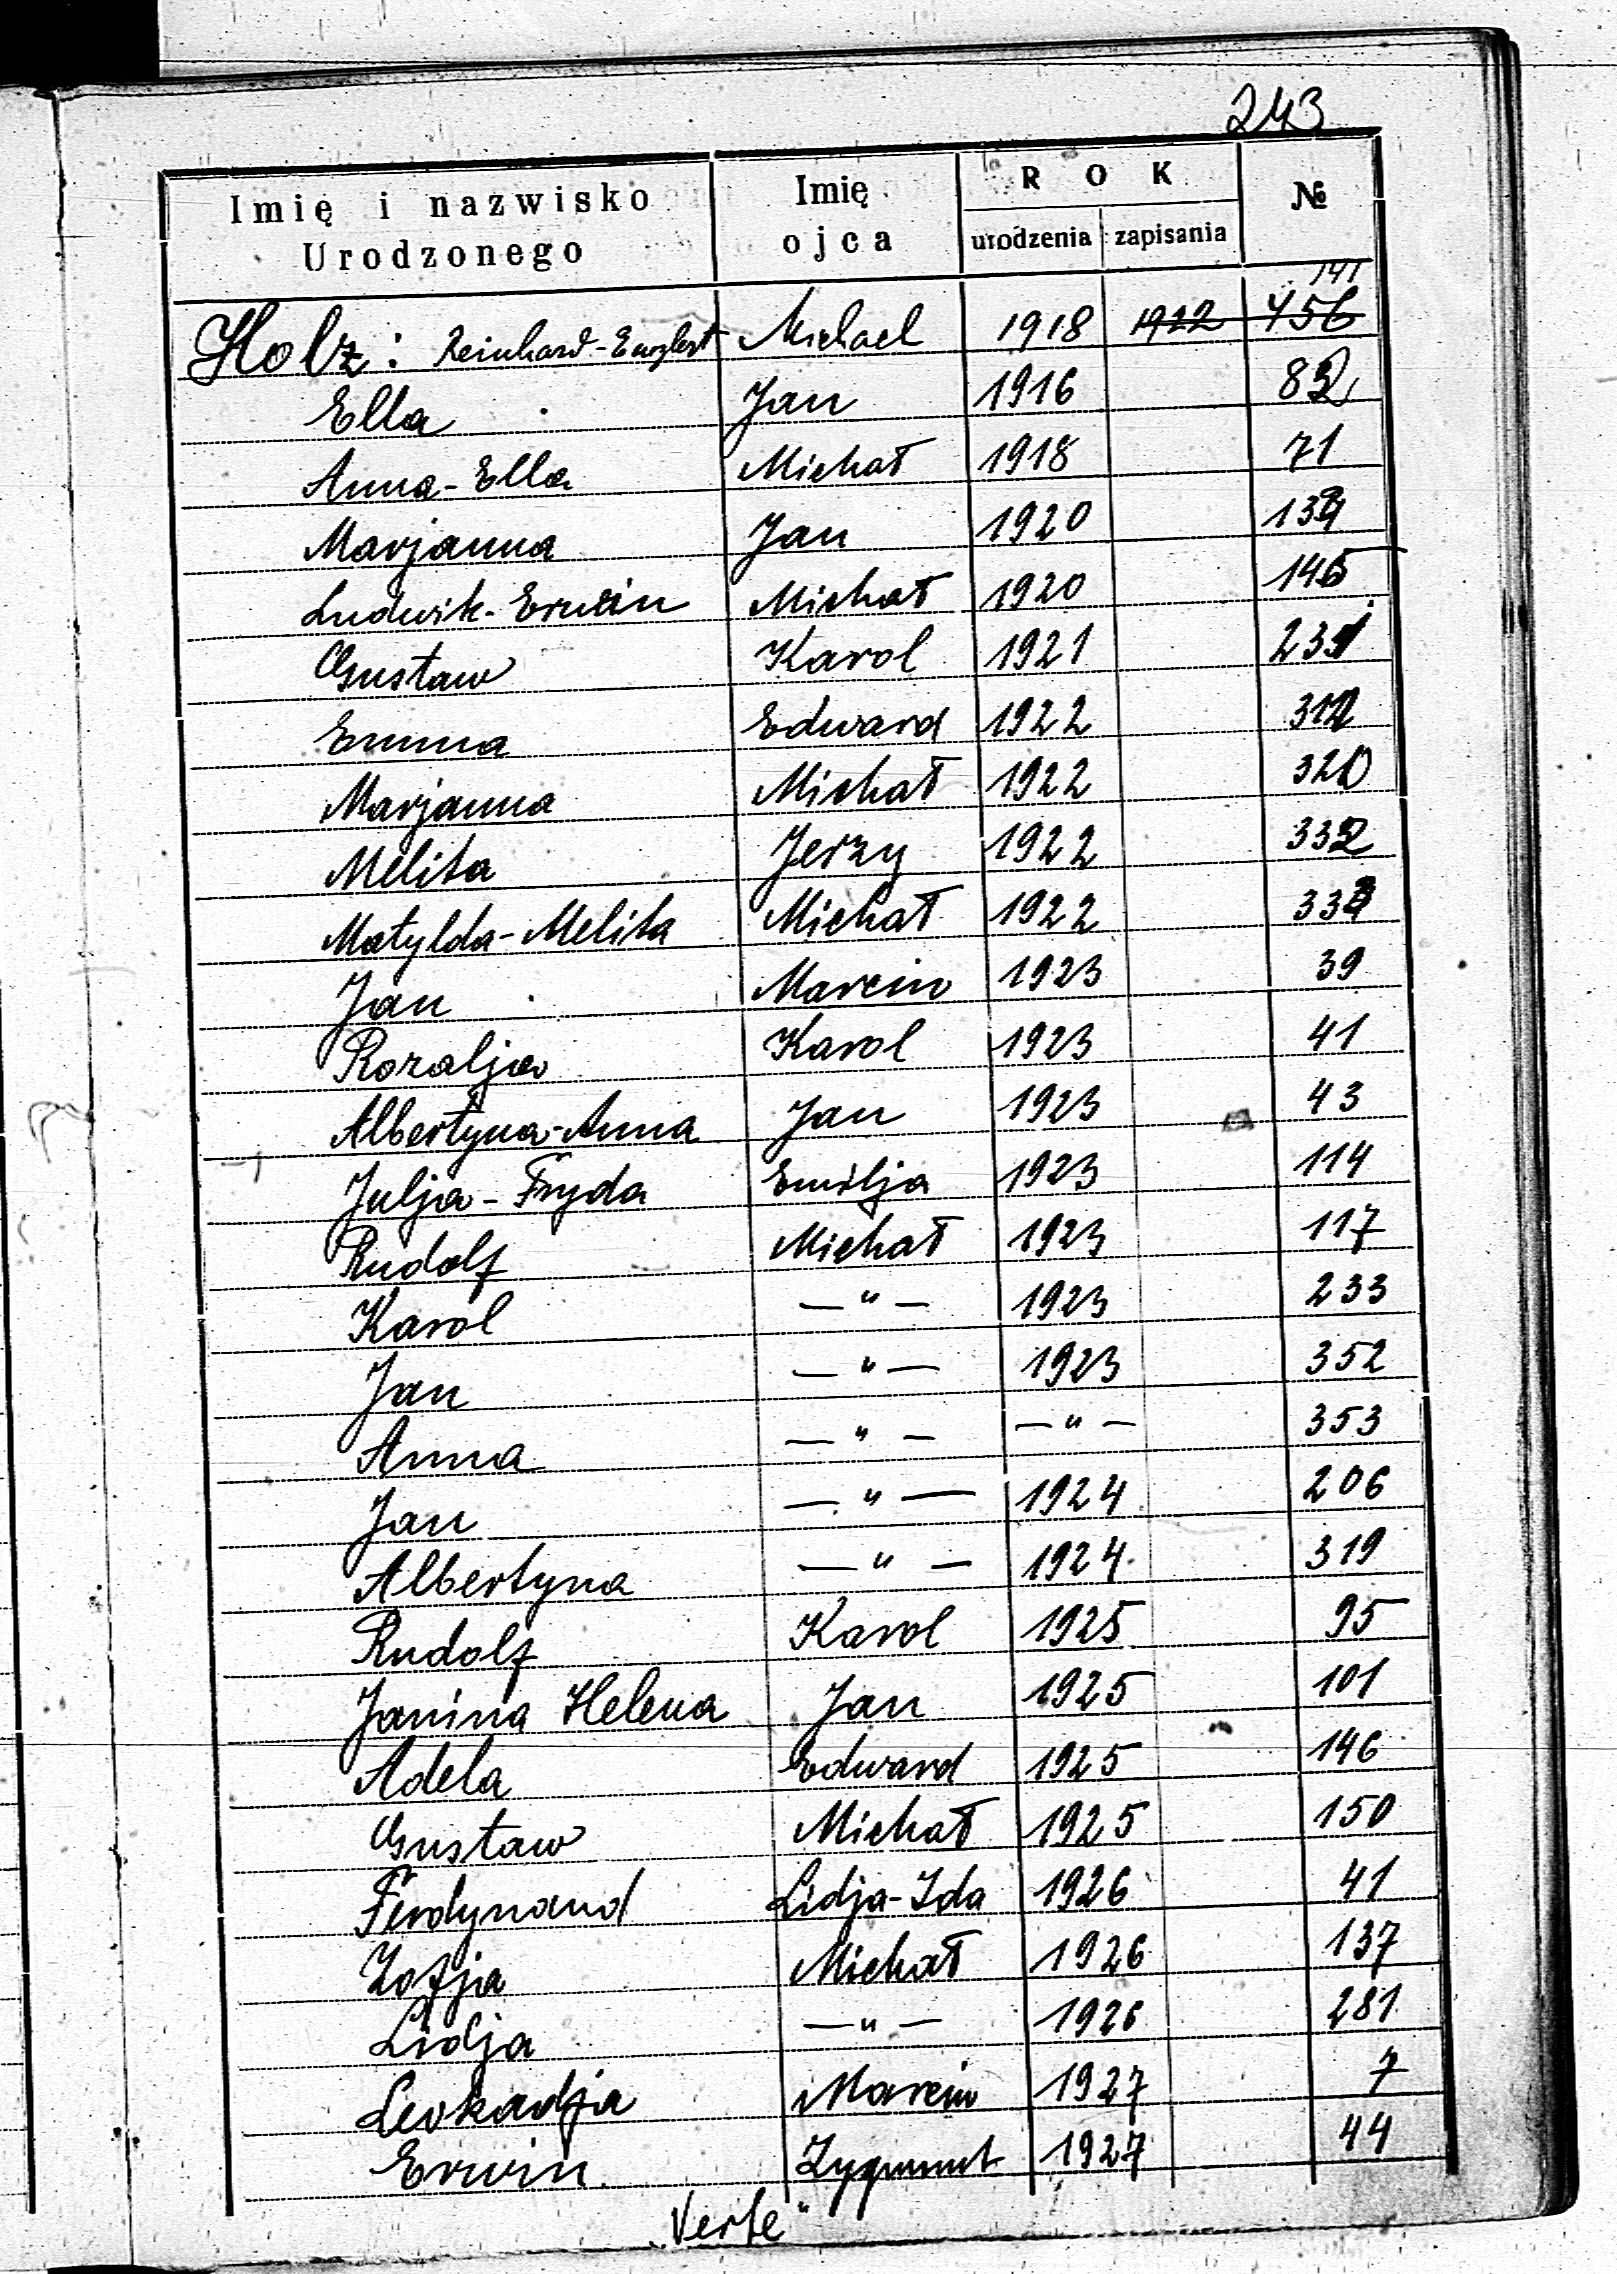 243
Imię i nazwisko Urodzonego | Imię ojca | ROK urodzenia | zapisania | №
141
Holz: Reinhard- | Michael | 1918 | 1922 | 456
Ella | Jan | 1916 | 82
Anna-Ella | Michał | 1918 | 71
Marjanna | Jan | 1920
Ludwik-Erwin | Michał | 1920 | 145
Gustaw | Karol | 1921 | 231
Emma | Edward | 1922 | 312
Marjanna | Michał | 1922 | 320
Melita | Jerzy | 1922 | 332
Matylda-Melita | Michał | 1922 | 333
Jan | Marcin | 1923 | 39
Rozalja | Karol | 1923 | 41
Albertyna-Anna | Jan | 1923 | 43
Julja-Fryda | Emilja | 1923 | 114
Rudolf | Michał | 1923 | 117
Karol | —"— | 1923 | 233
Jan | —"— | 1923 | 352
Anna | —"— | —"— | 353
Jan | —"— | 1924 | 206
Albertyna | —"— | 1924 | 319
Rudolf | Karol | 1925 | 95
Janina Helena | Jan | 1925 | 101
Adela | Edward | 1925 | 146
Gustaw | Michał | 1925 | 150
Ferdynand | Lidja-Ida | 1926 | 41
Zofja | Michał | 1926 | 137
Lidja | —"— | 1926 | 281
Leokadja | Marcin | 1927 | 7
Erwin | Zygmunt | 1927 | 44
„Verte"